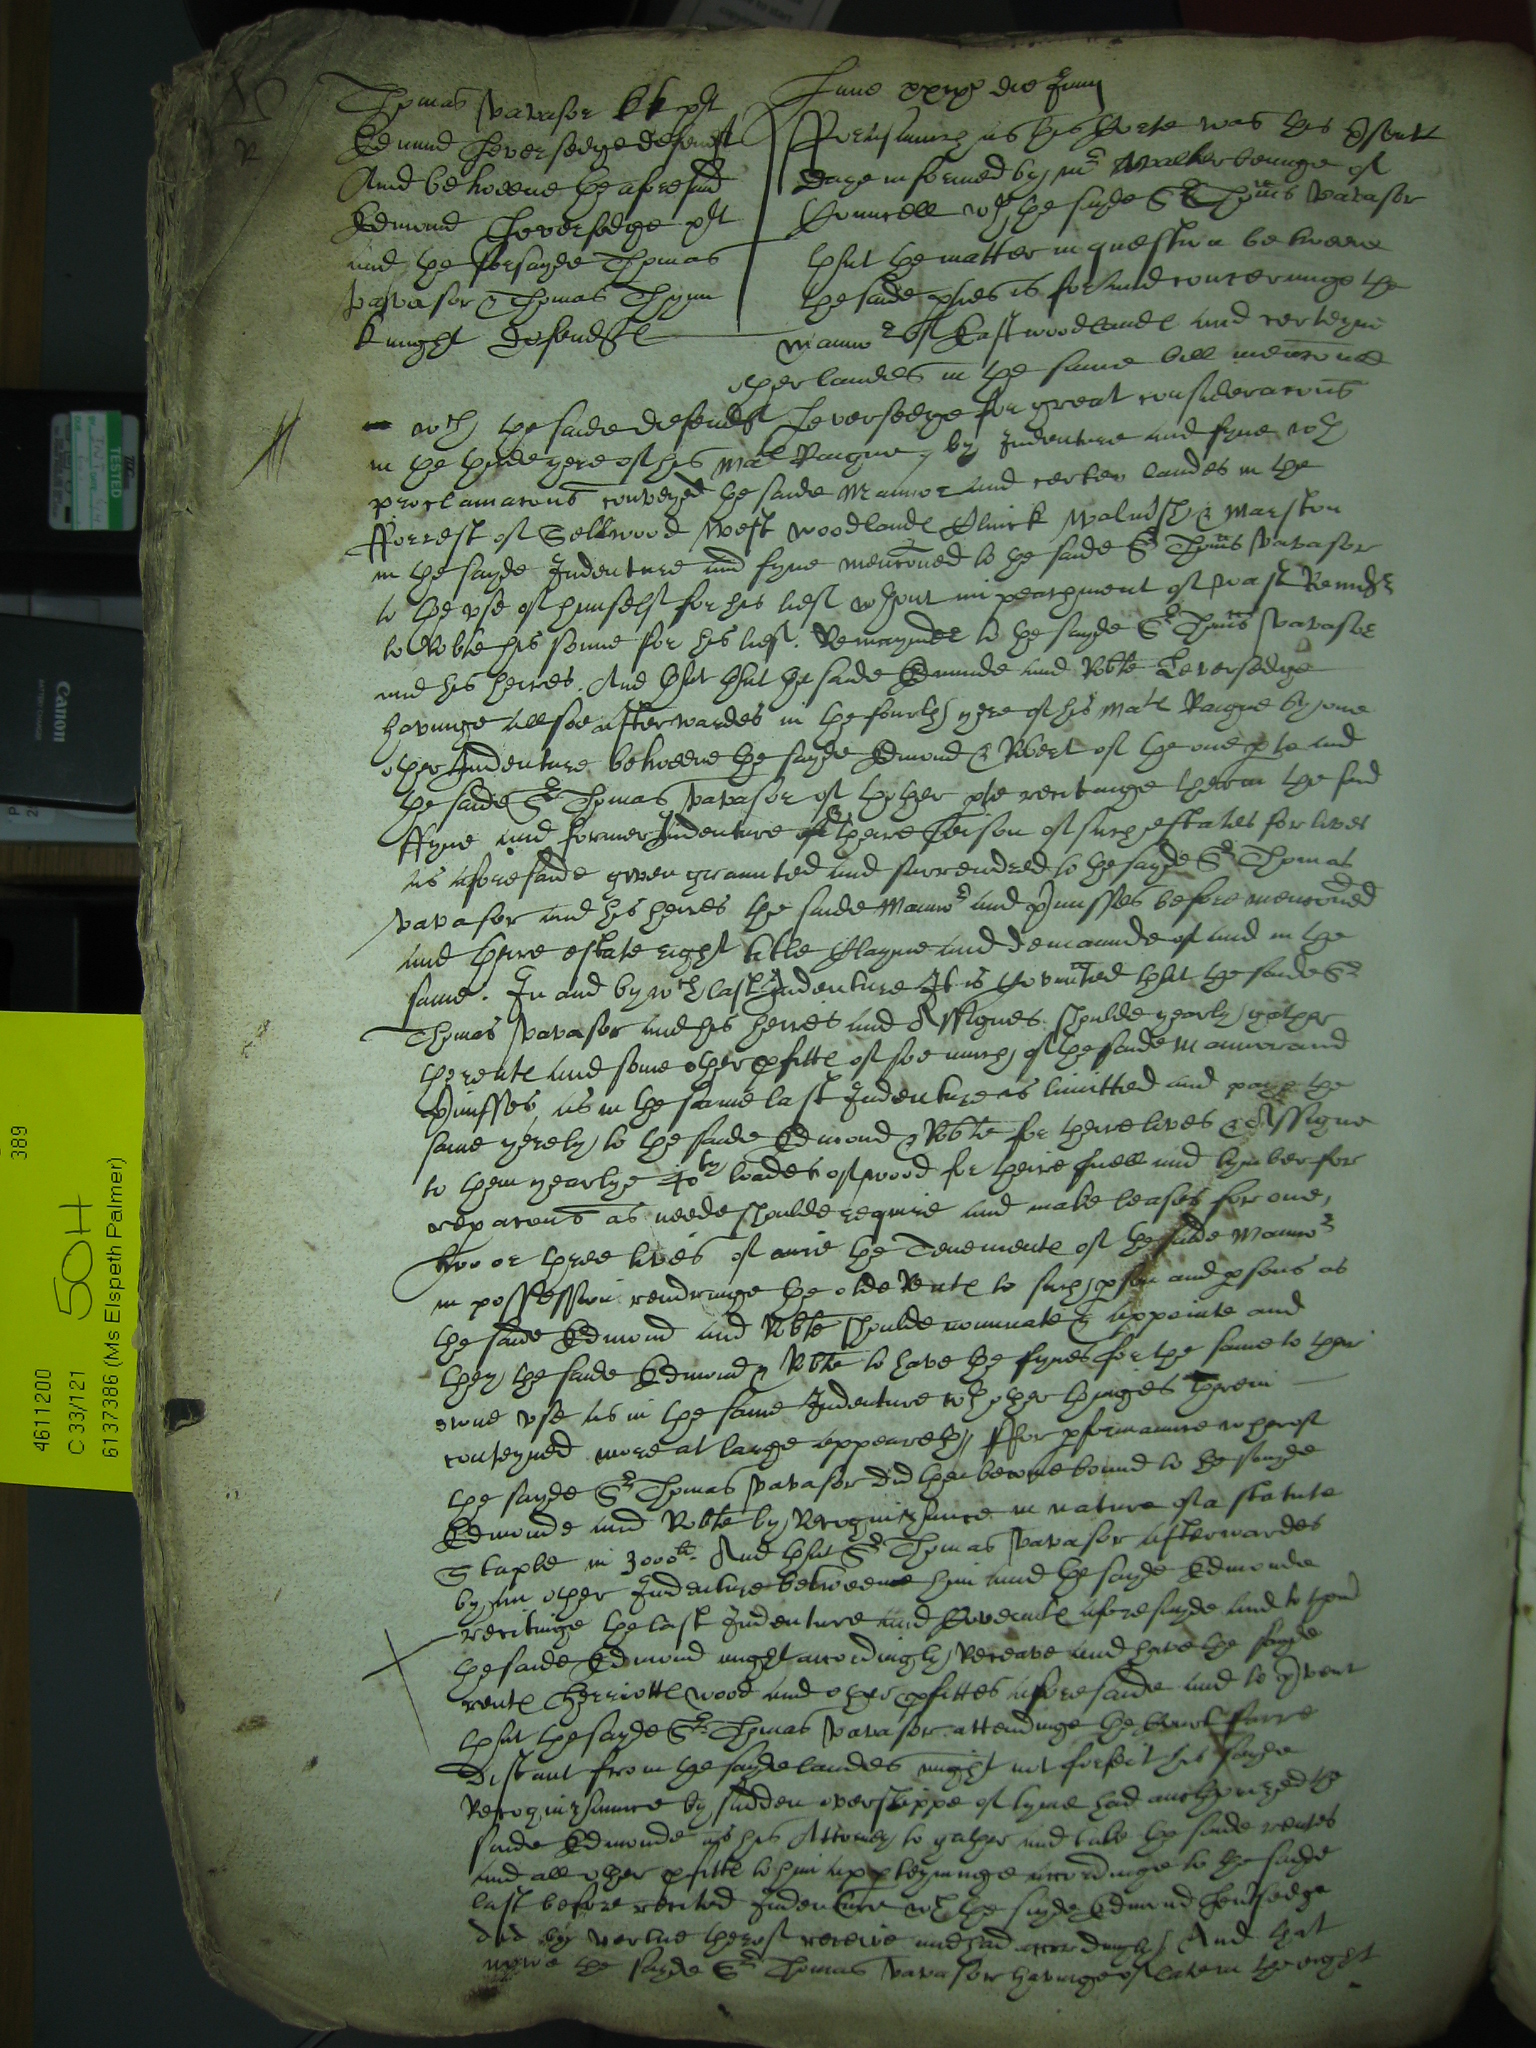 June xxixº die Junij
Thomas Vavasor kt plt
Edmund Leversedge defendt
And betweene the aforesaid
Edmond Leversedge plt
and the forsayde Thomas
Vavasor & Thomas Thynn
knight defendtes
Fforasmuch as this Corte was this psent
daye informed by mr Walter of
Councell wth the sayde Sr Thoms Vavasor
that the matter in question betweene
the saide pties is for and concerninge the
Mannor of Eastwoodlandes and certeyne
other landes in the same bill mencioned
wch the saide defendt Leversedge for great consideracons
in the yere of his Mates Raigne by Indenture and fyne wth
proclamacons conveyed the saide Mannor and certen landes in the
fforrest of Sellwood West woodlandes & Marston
in the sayde Indenture and fyne mencioned to the saide Sr Thoms Vavasor
to the use of himself for his lief wthout impeachment of wast Remaindr
to Robte his sonne for his lief. Remaynder to the sayde Sr Thoms Vavasor
and his heires. And that the saide Edmunde and Robte Leversedge
havinge allsoe afterwardes in the fourth yere of his Mates Raigne by one
other Indenture betweene the sayde Edmond & Robert of the one pte and
the saide Sr Thomas Vavasor of thother pte recitinge therin the said
ffyne and former Indenture of such estates for lives
as aforesaide given graunted and surrendred to the sayde Sr Thomas
Vavasor and his heires the saide Mannor and pmisses before mencioned
and theire estate right title Clayme and demaunde of and in the
same. In and by wch last Indenture It is Covenated that the saide Sr
Thomas Vavasor and his heires and Assignes shoulde yearly gather
the rentes and some other pfittes of soe much of the saide Mannor and
pmisses as in the same last Indenture is limitted and paye the
same yerely to the saide Edmond & Robte for theire lives & Assigne
to them yearlye 40ty loades of wood for theire fuell and tymber for
reparacons as neede shoulde require and make leases for one,
two or three lives of anie the Tenementes of the saide Mannor
in possession rendringe the olde Rentes to such pson and psons as
the saide Edmond and Robte shoulde nominate & appointe and
they the saide Edmond & Robte to have the fynes for the same to their
owne use as in the same Indenture wth other thinges therein
conteyned more at large appeareth, ffor pformaunce wherof
the sayde Sr Thomas Vavasor did then become bound to the sayde
Edmonde and Robte by Recognizaunce in nature of a statute
Staple in 3000li. And that Sr Thomas Vavasor afterwardes
by an other Indenture betweene him and the sayde Edmonde
recitinge the last Indenture and Covenantes aforesayde and to thend
the saide Edmond might accordingly Receave and have the sayde
rentes Herriottes wood and other pfittes aforesaide and to pvent
that the sayde Sr Thomas Vavasor attendinge the Court farre
distant from the sayde landes might not forfeit his sayde
Recognizaunce by sudden overslippe of tyme had aucthorized the
saide Edmonde as his Attorney to gather and take the saide rentes
and all other pfittes to him apperteyninge accordinge to the saide
last before recited Indenture wch the sayde Edmond Leversedge
did by vertue therof receive and had accordingly And that
nowe the sayde Sr Thomas Vavasor havinge of late in the right
4611200
389
C 33/121
50H
6137386 (Ms Elspeth Palmer)
Canon
TESTED